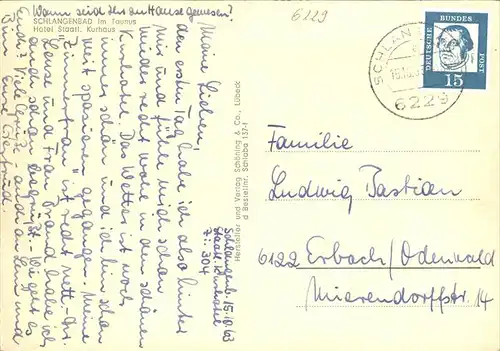 Wann seid Ihr zu Hause gewesen?
SCHLANGENBAD im Taunus
Hotel Staatl. Kurhaus
6229
Schlangenb. 15.10.63
Staatl. Kurhotel
Zi. 304
Meine Lieben,
den ersten Tag habe ich also hinter
mir und fühle mich schon
wohl in dem schönen
Kurhotel. Das Wetter ist noch
immer schön und ich bin schon
weit spazieren gegangen. Meine
"Zimmerfrau" ist recht nett -
und Frau habe ich
auch schon begrüßt - Wie geht es
Euch? Viele auch an und
Hersteller und Verlag Schöning & Co., Lübeck
Bestellnr. Schlaba 137-f
SCHLAN
15.10.
6229
DEUTSCHE BUNDES POST
15
Familie
Ludwig Bastian
6122 Erbach/Odenwald
Mierendorffstr. 14